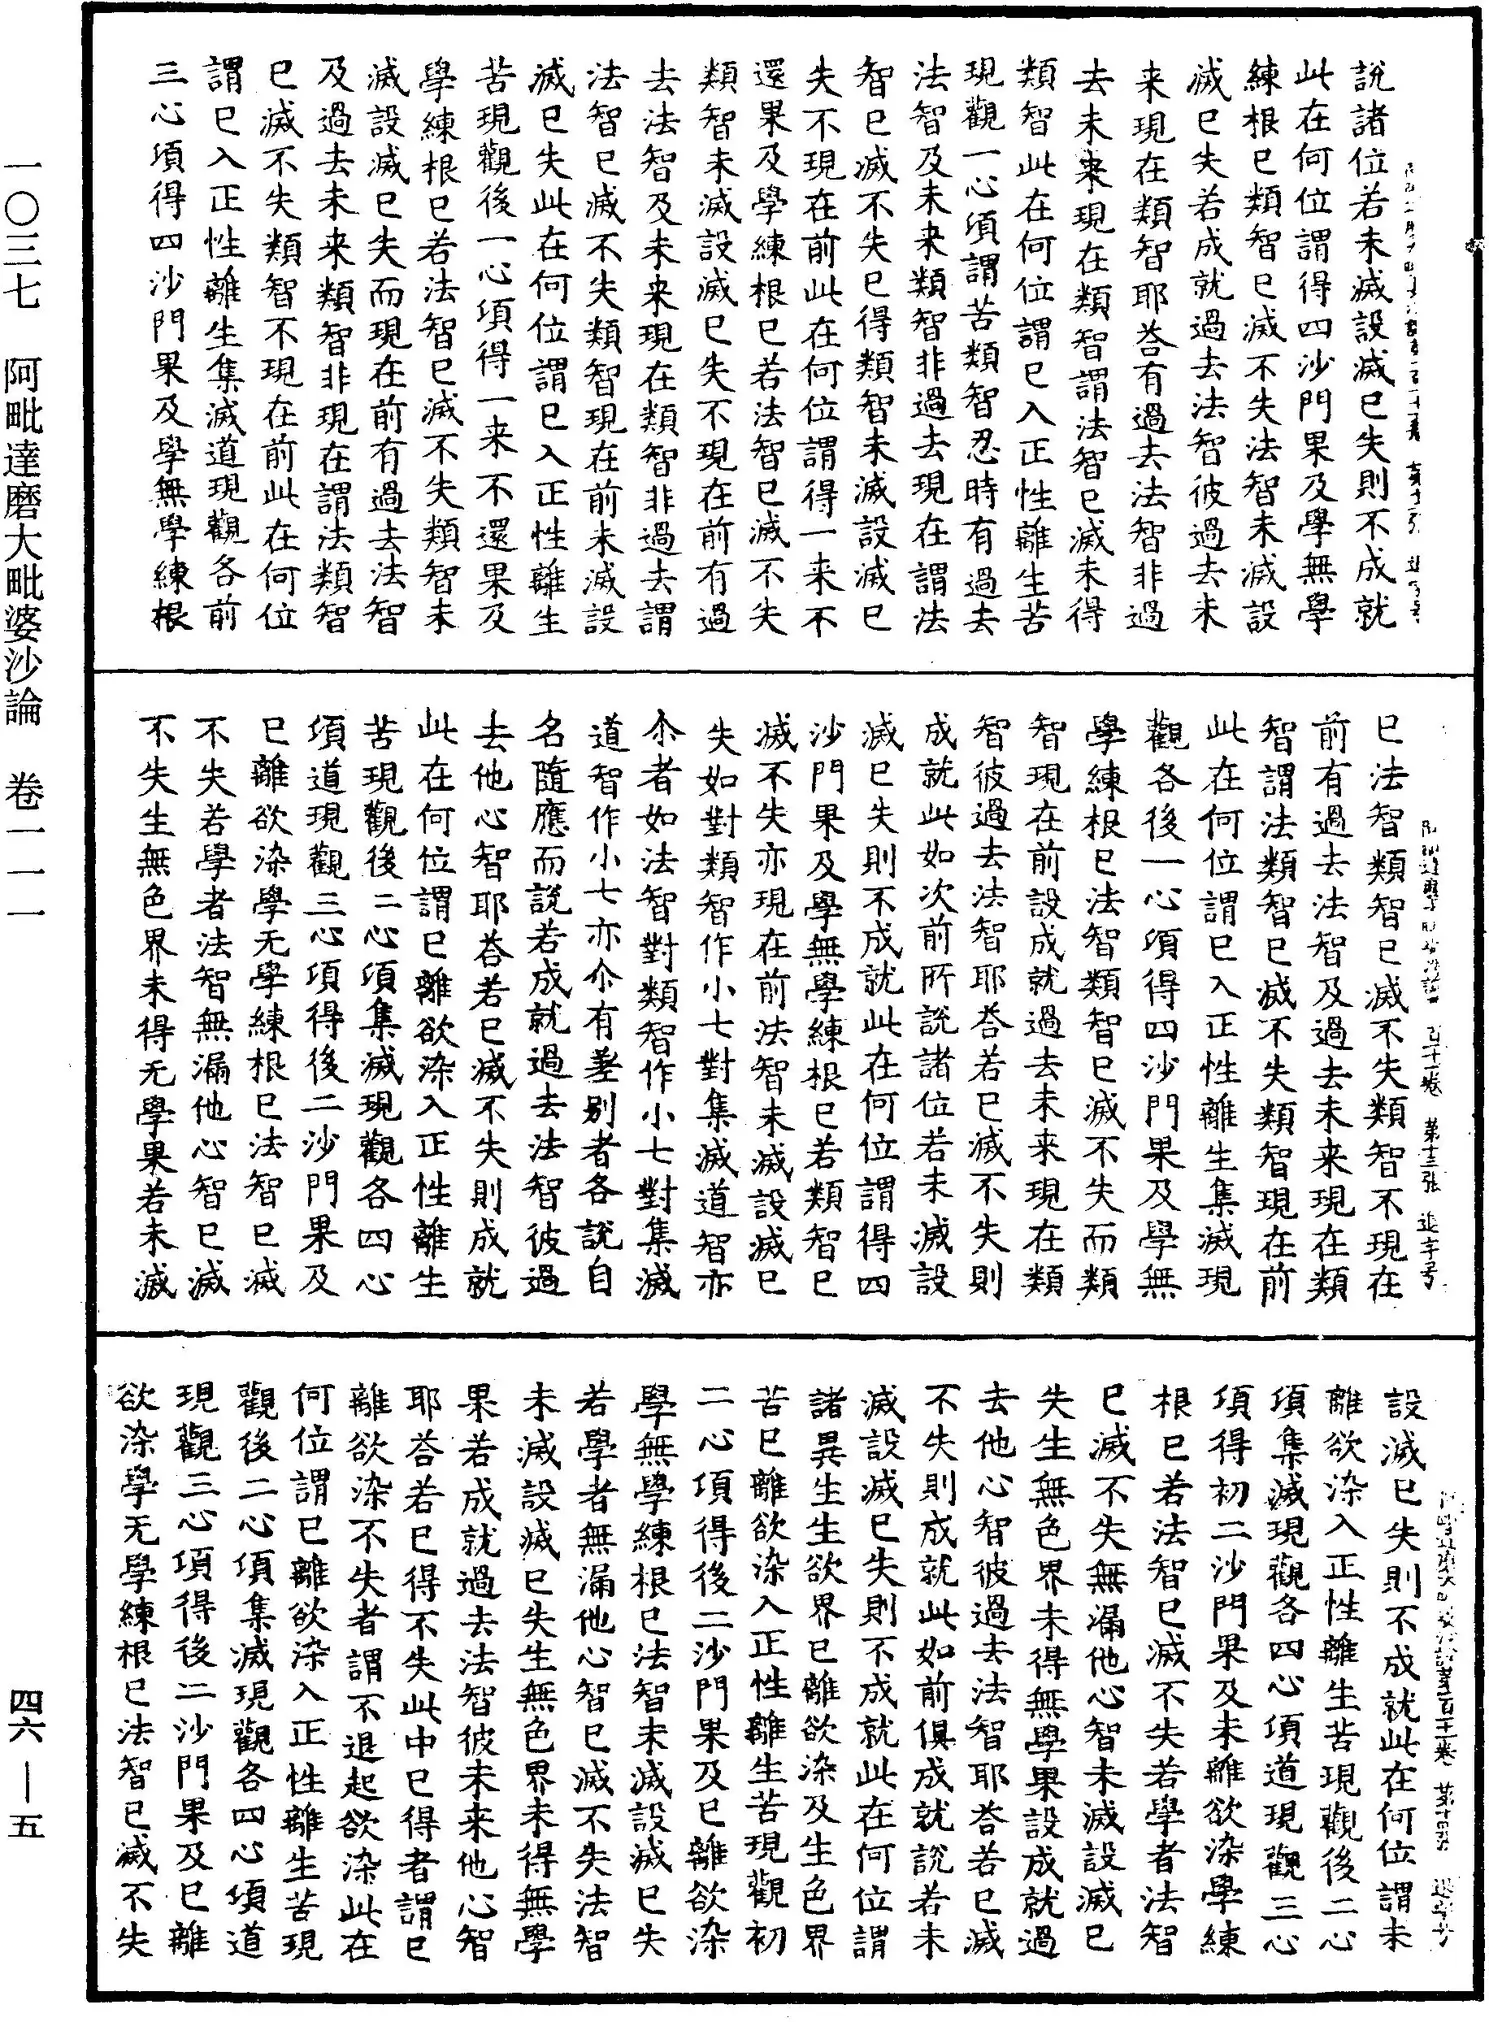 說諸位若未滅設滅已失則不成就
此在何位謂得四沙門果及學無學
練根已類智已滅不失法智未滅設
滅已失若成就過去法智彼過去未
来現在類智耶荅有過去法智非過
去未来現在類智謂法智已滅未得
類智此在何位謂已入正性離生苦
現觀一心項謂苦類智忍時有過去
法智及未来類智非過去現在謂法
智已滅不失已得類智未滅設滅已
失不現在前此在何位謂得一来不
還果及學練根已若法智已滅不失
類智未滅設滅已失不現在前有過
去法智及未来現在類智非過去謂
法智已滅不失類智現在前未滅設
滅已失此在何位謂已入正性離生
苦現觀後一心項得一来不還果及
學練根已若法智已滅不失類智未
滅設滅已失而現在前有過去法智
及過去未来類智非現在謂法類智
已滅不失類智不現在前此在何位
謂已入正性離生集滅道現觀各前
三心項得四沙門果及學無學練根
已法智類智已滅不失類智不現在
前有過去法智及過去未来現在類
智謂法類智已滅不失類智現在前
此在何位謂已入正性離生集滅現
觀各後一心項得四沙門果及學無
學練根已法智類智已滅不失而類
智現在前設成就過去未来現在類
智彼過去法智耶荅若已滅不失則
成就此如次前所說諸位若未滅設
滅已失則不成就此在何位謂得四
沙門果及學無學練根已若類智已
滅不失亦現在前法智未滅設滅已
失如對類智作小七對集滅道智亦
尒者如法智對類智作小七對集滅
道智作小七亦尒有差别者各說自
名隨應而說若成就過去法智彼過
去他心智耶荅若已滅不失則成就
此在何位謂已離欲染入正性離生
苦現觀後二心項集滅現觀各四心
項道現觀三心項得後二沙門果及
已離欲染學无學練根已法智已滅
不失若學者法智無漏他心智已滅
不失生無色界未得无學果若未滅
設滅已失則不成就此在何位謂未
離欲染入正性離生苦現觀後二心
項集滅現觀各四心項道現觀三心
項得初二沙門果及未離欲染學練
根已若法智已滅不失若學者法智
已滅不失無漏他心智未滅設滅已
失生無色界未得無學果設成就過
去他心智彼過去法智耶荅若已滅
不失則成就此如前俱成就說若未
滅設滅已失則不成就此在何位謂
諸異生生欲界已離欲染及生色界
苦已離欲染入正性離生苦現觀初
二心項得後二沙門果及已離欲染
學無學練根已法智未滅設滅已失
若學者無漏他心智已滅不失法智
未滅設滅已失生無色界未得無學
果若成就過去法智彼未来他心智
耶荅若已得不失此中已得者謂已
離欲染不失者謂不退起欲染此在
何位謂已離欲染入正性離生苦現
觀後二心項集滅現觀各四心項道
現觀三心項得後二沙門果及已離
欲染學无學練根已法智已滅不失
一〇三七 阿毗達磨大毗婆沙論 卷一一一
四六—五